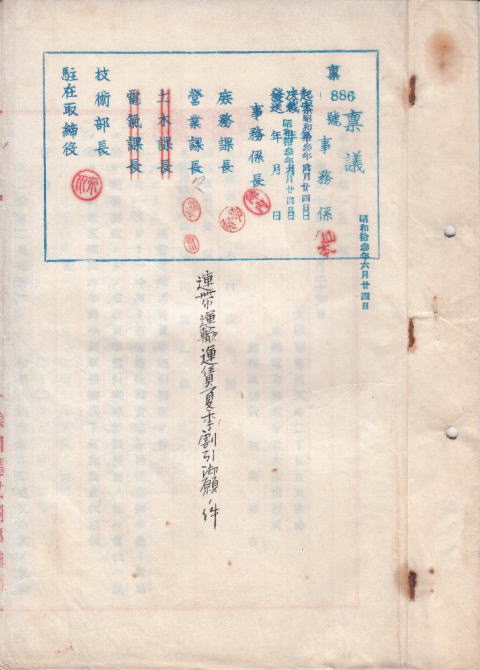 昭和拾参年六月廿四日
稟議
稟 886 號
事務係
起案昭和拾参年六月廿四日
決裁昭和拾参年六月廿四日
發送 年 月 日
事務係長
庶務課長
營業課長
土木課長
電氣課長
技術部長
駐在取締役
連帯運輸運賃夏季割引御願ノ件